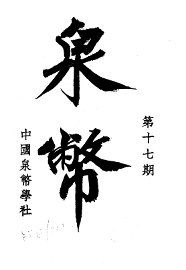 第十七期
泉幣
中國泉幣學社